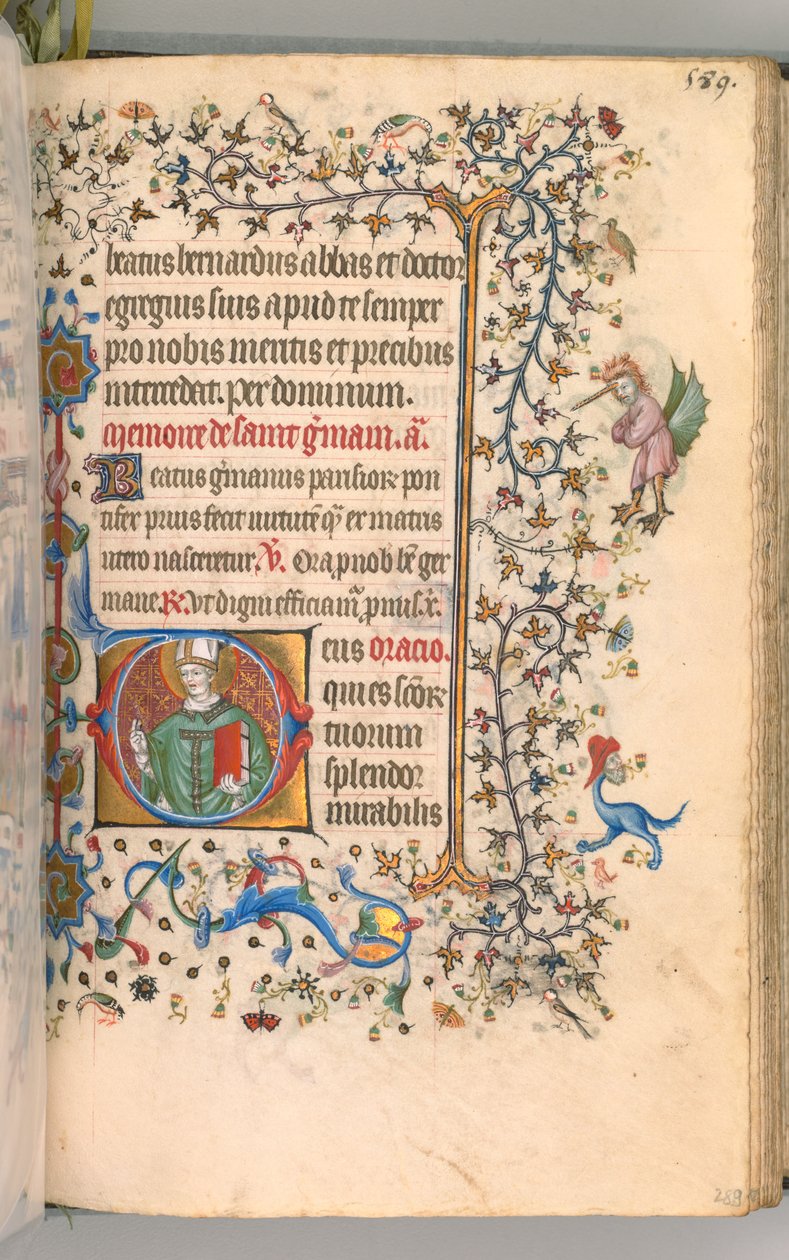 589.
beatus bernardus abbas et doctor
egregius suis apud te semper
pro nobis meritis et precibus
intercedat. Per dominum.
Memoire de saint g̃main. añ.
Beatus g̃manus parisioꝝ pon
tifex prius fecit uirtutẽ qͣ̃ ex matris
utero nasceretur. ℣. Ora ꝓ nob̃ bẽ ger
mane. ℟. Vt digni efficiam̃ ꝓmis̃. x̃.
Deus oracio.
qui es sc̃oꝝ
tuorum
splendor
mirabilis
289